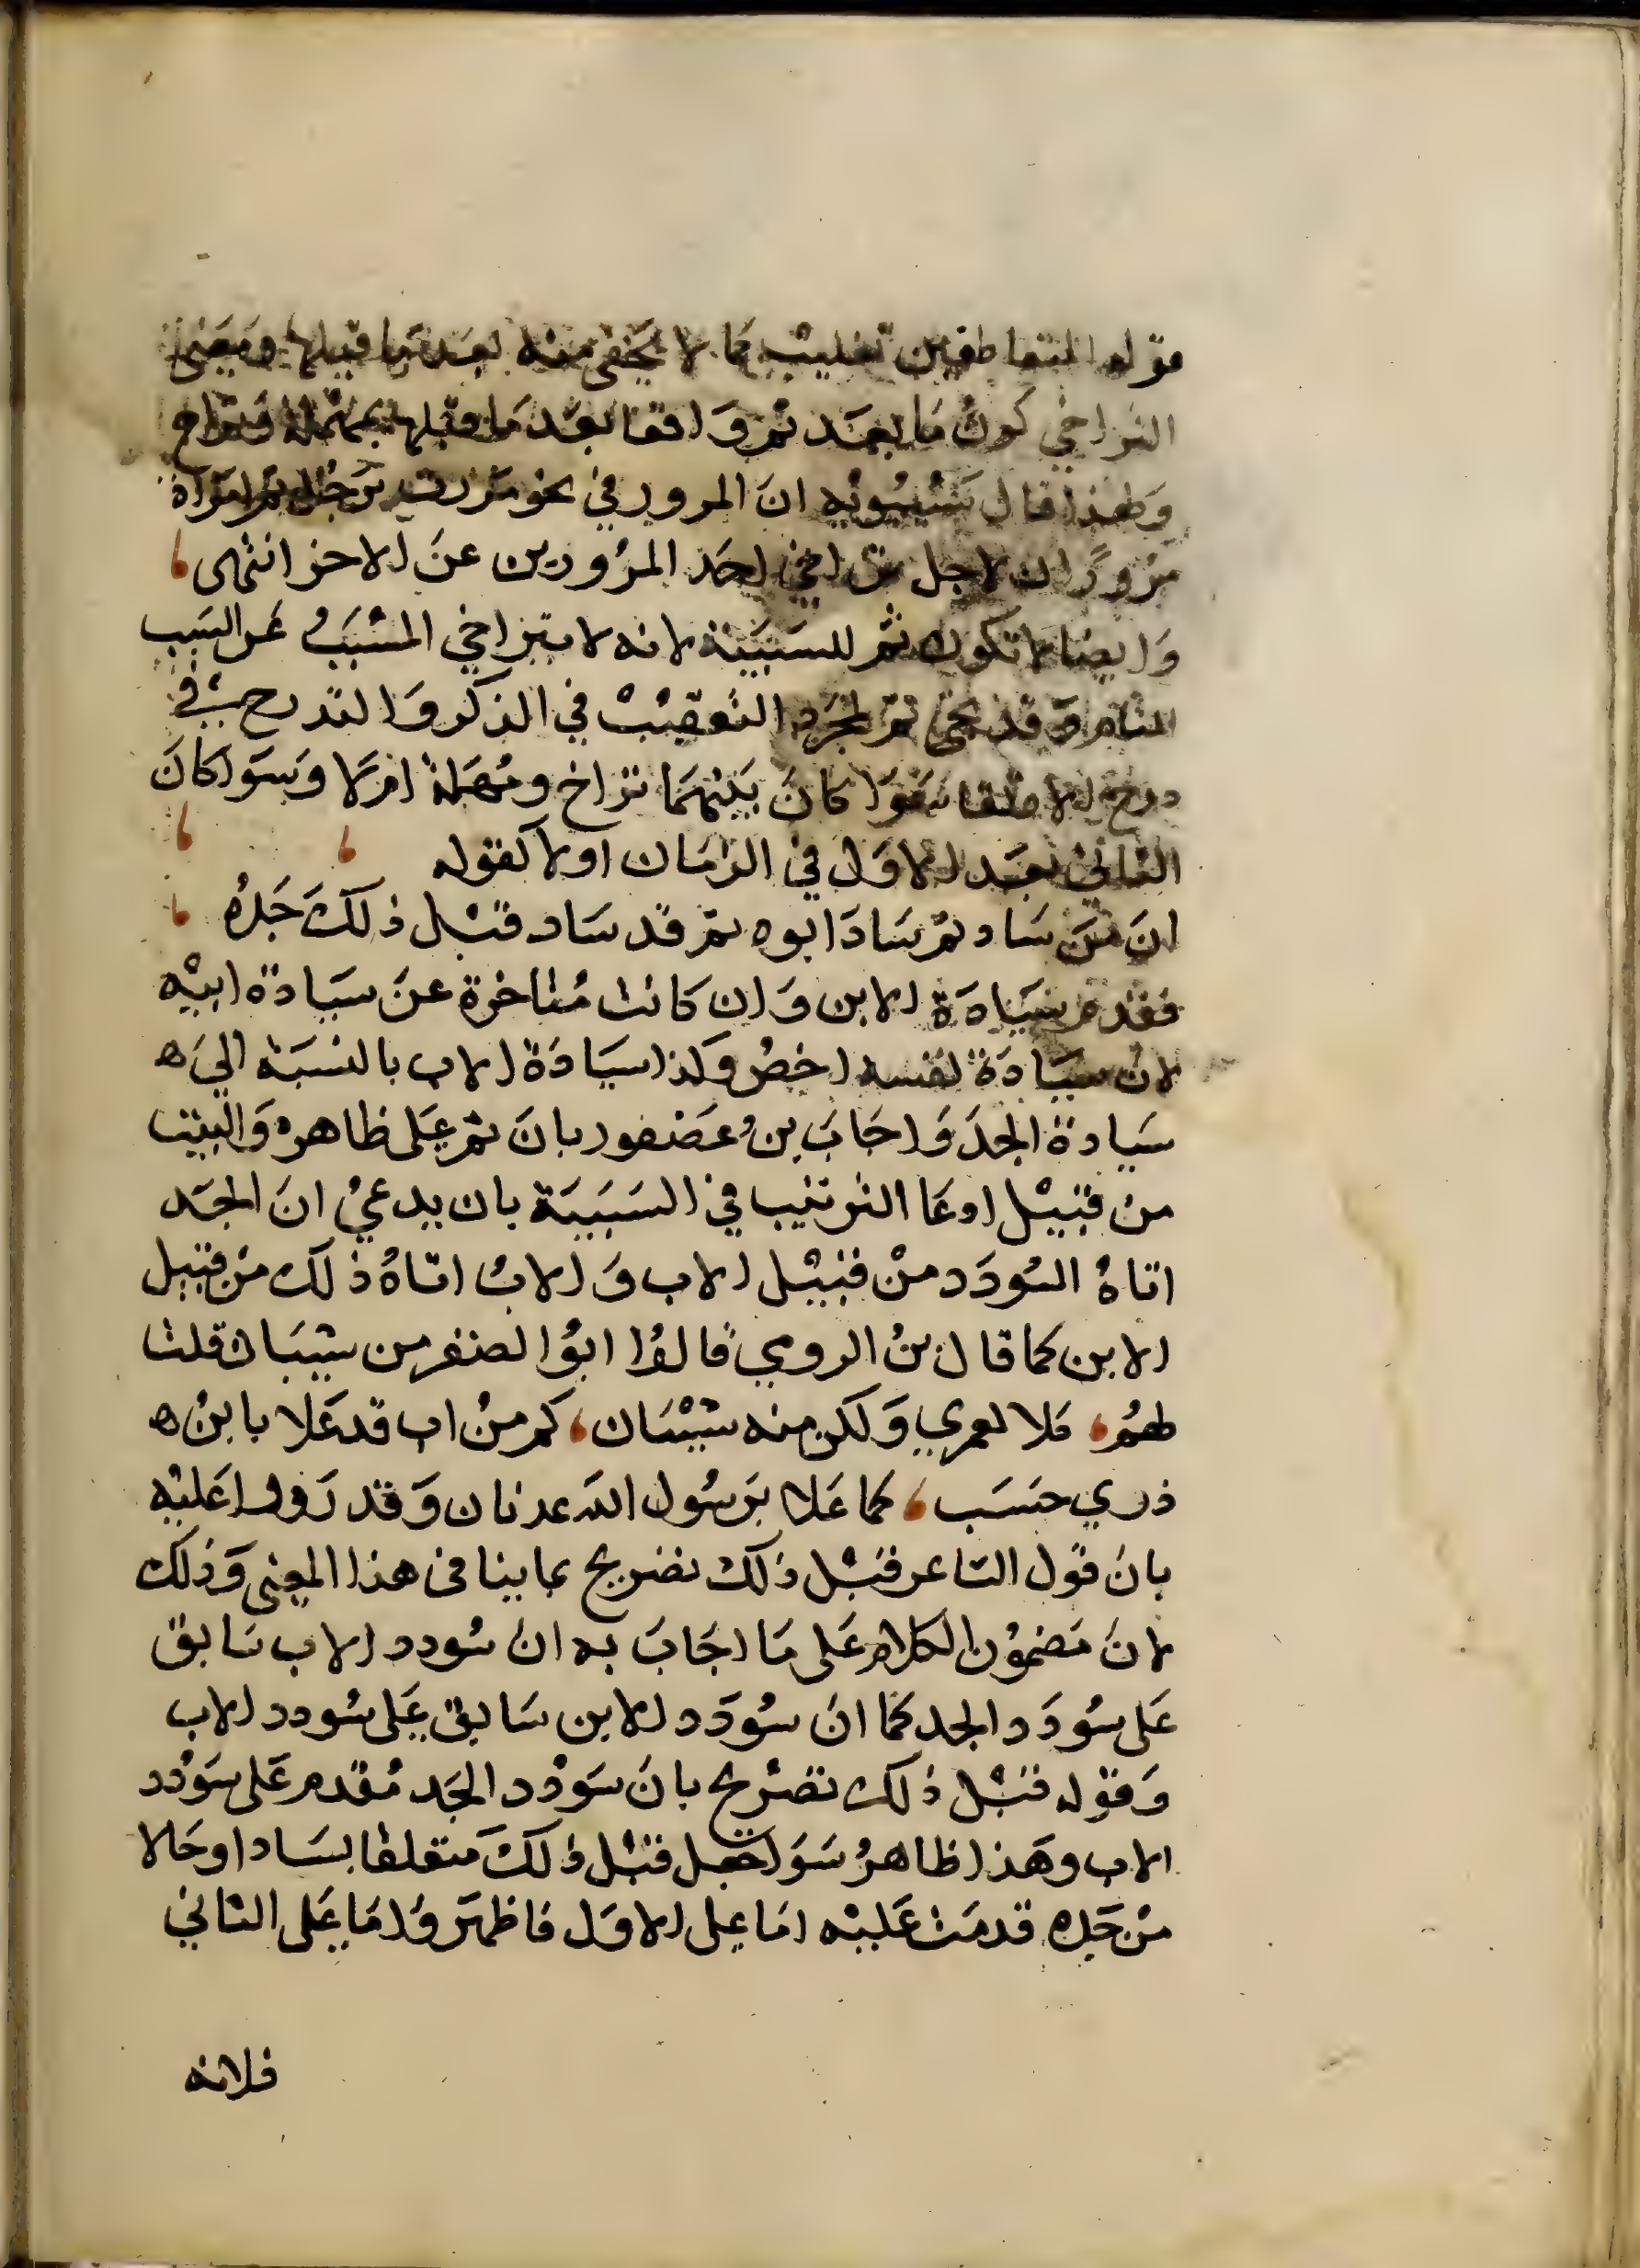 قوله المتعاطفين تغليب كما لا يخفى منه بعد ما قبلها ومعنى
التراخي كون ما بعد ثم واقعا بعد ما قبلها بمهملة وتراخ
ولهذا قال سيبويه ان المرور في نحو مررت برجل ثم امراة
مروران لاجل تراخي احد المرورين عن الاخر انتهى
وايضا لا تكون ثم للسببية لانه لا يتراخي المسبب عن السبب
التام وقد تجي ثم لمجرد التعقيب في الذكر والتدرح في
درج الارتقا سوا كان بينهما تراخ ومهملة ام لا وسوا كان
الثاني بعد الاول في الزمان اولا كقوله
ان من ساد ثم ساد ابوه ثم قد ساد قبل ذلك جده
فقدم سيادة الابن وان كانت متاخرة عن سيادة ابيه
لان سيادة نفسه اخص وكذا سيادة الاب بالنسبة الي ه
سيادة الجد واجاب بن عصفور بان ثم على ظاهره والبيت
من قبيل ادعا الترتيب في السببية بان يدعي ان الجد
اتاه السودد من قبيل الاب والاب اتاه ذلك من قبيل
الابن كما قال بن الرومي قالوا ابوا لصقر من شيبان قلت
لهم كلا لعمري ولكن منه شيبان كم من اب قد علا بابن ه
ذري حسب كما علا برسول الله عدنان وقد ردوا عليه
بان قول الشاعر قبل ذلك تصريح بما ينافى هذا المعنى وذلك
لان مضمون الكلام على ما اجاب به ان سودد الاب سابق
على سودد الجد كما ان سودد الابن سابق على سودد الاب
وقوله قبل ذلك تصريح بان سودد الجد مقدم على سودد
الاب وهذا ظاهر سوا جعل قبل ذلك متعلقا بساد او حالا
من جده قدمت عليه اما على الاول فاظهر واما على الثاني
فلانه